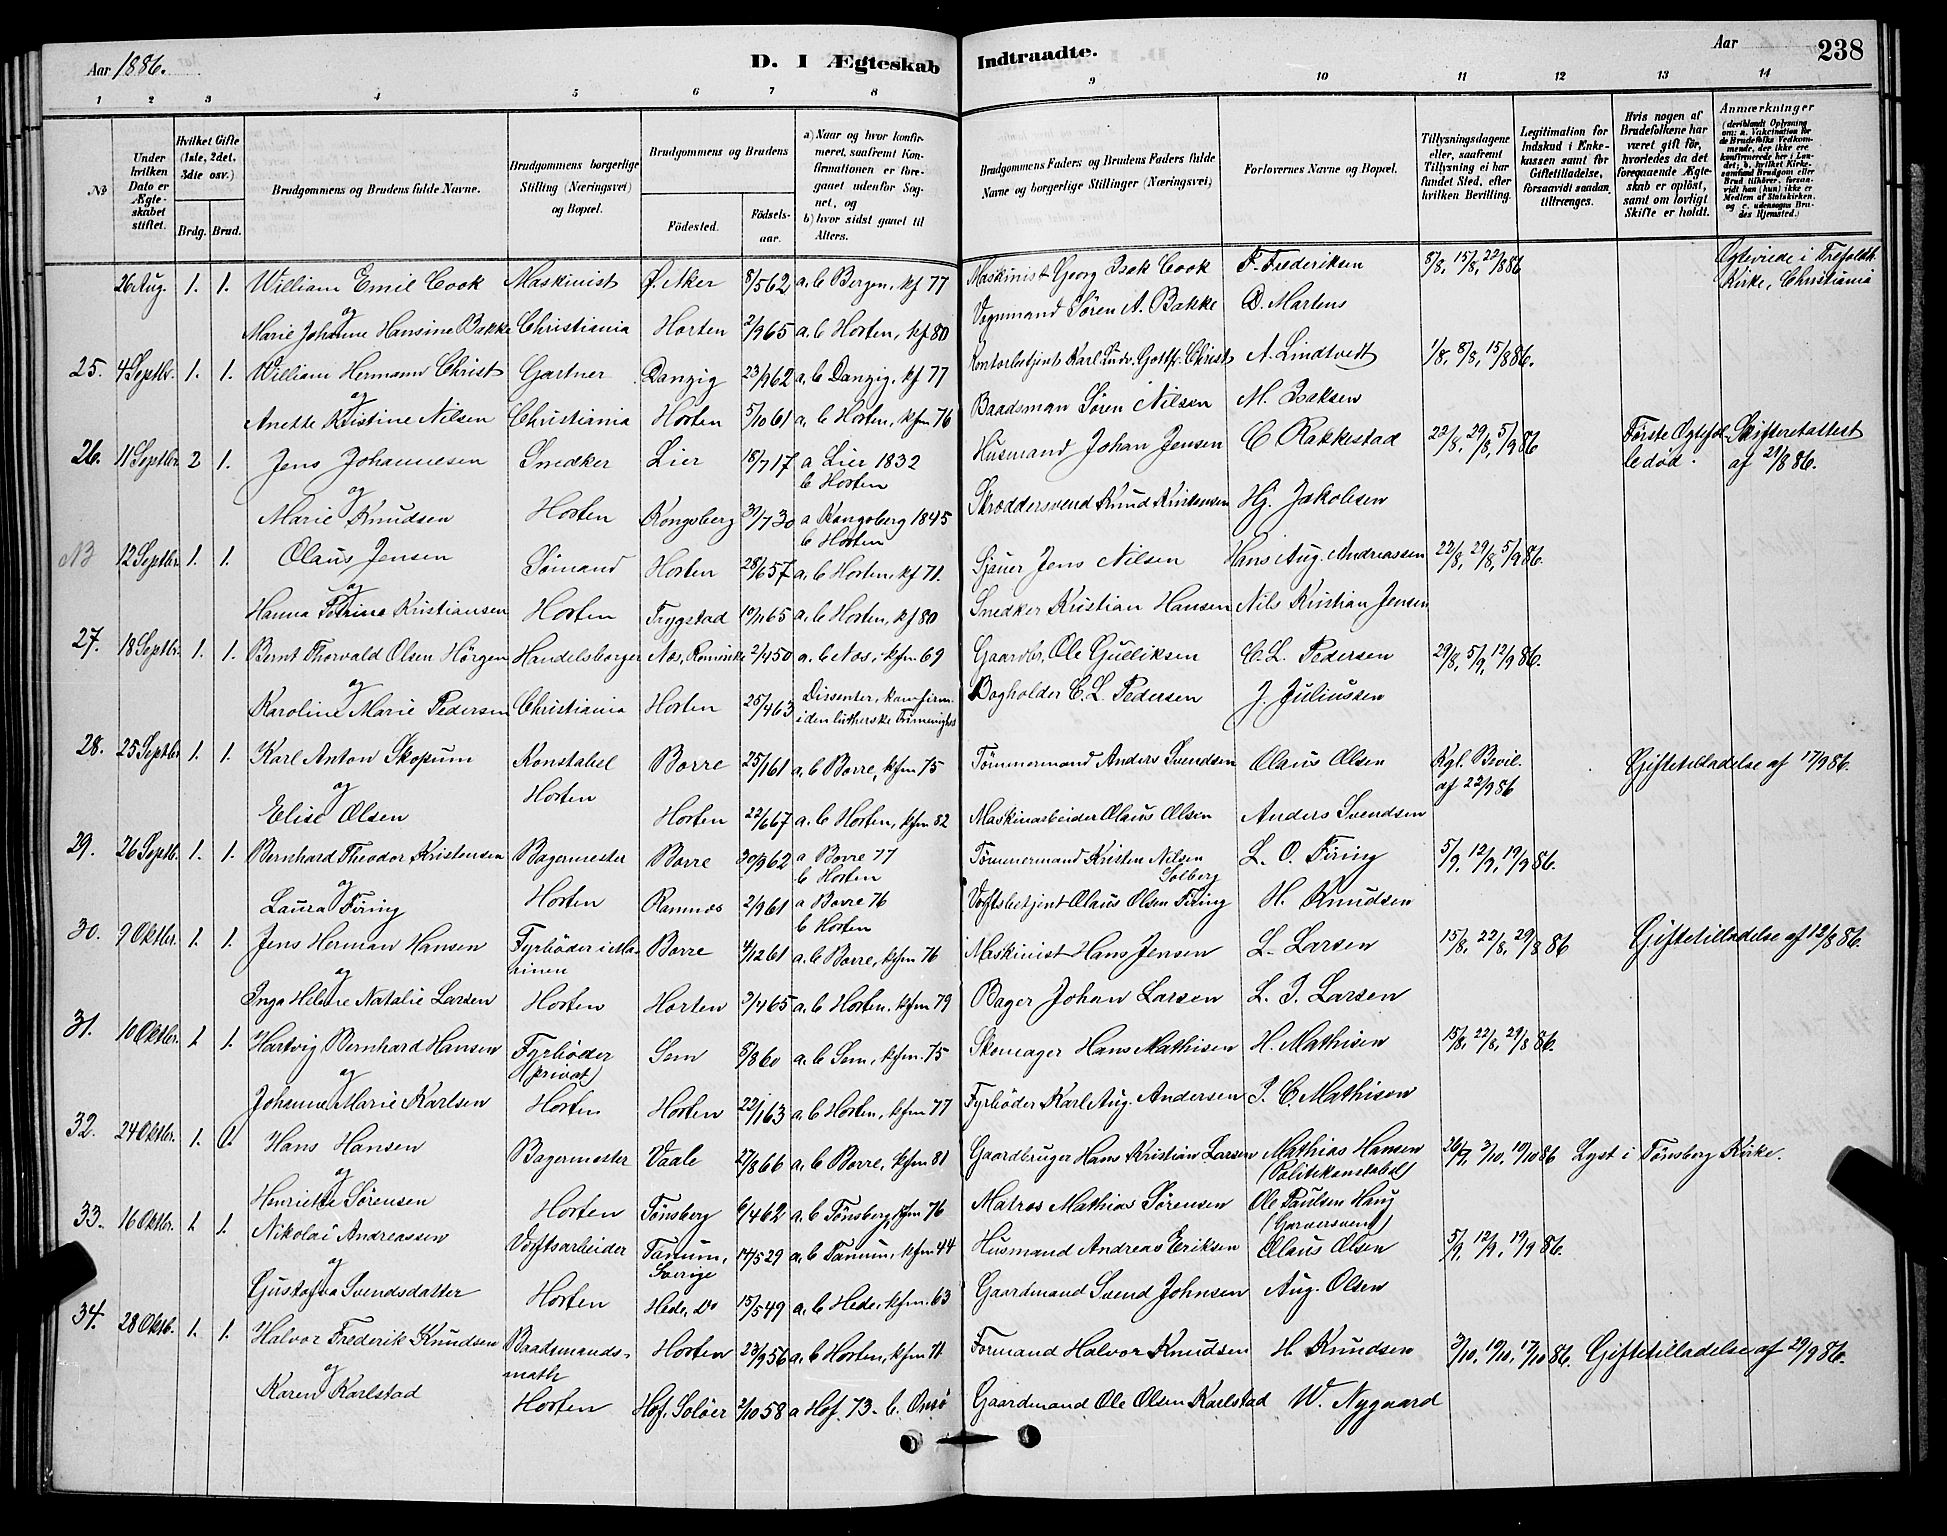 Aar 1886.
D. I Ægteskab Indtraadte.
Aar 238
1 2 3 4 5 6 7 8 9 10 11 12 13 14
No
Under hvilken Dato er Ægteskabet stiftet.
Hvilket Gifte (1ste, 2det, 3die osv.)
Brdg. Brud.
Brudgommens og Brudens fulde Navne.
Brudgommens borgerlige Stilling (Næringsvei) og Bopæl.
Brudgommens og Brudens
Fødested. Fødselsaar.
a) Naar og hvor konfirmeret, saafremt Konfirmationen er foregaaet udenfor Sognet, og
b) hvor sidst gaaet til Alters.
Brudgommens Faders og Brudens Faders fulde Navne og borgerlige Stillinger (Næringsvei)
Forlovernes Navne og Bopæl.
Tillysningsdagene eller, saafremt Tillysning ei har fundet Sted, efter hvilken Bevilling.
Legitimation for Indskud i Enkekassen samt for Giftetilladelse, forsaavidt saadan tiltrænges.
Hvis nogen af Brudefolkene har været gift før, hvorledes da det foregaaende Ægteskab er opløst, samt om lovligt Skifte er holdt.
Anmærkninger (deriblandt Oplysning om: a. Vakcination for de Brudefolks Vedkommende, der ikke ere konfirmerede her i Landet; b. hvilket Kirkesamfund Brudgom eller Brud tilhører, forsaavidt han (hun) ikke er Medlem af Statskirken, og c. udensogns Brudes Hjemsted.)
26 Aug. 1. 1. William Emil Cook Maskinist Ø. Aker 8/5 62 a. b Bergen, kf 77 Maskinist Georg Isak Cook F. Frederiksen 8/8, 15/8, 22/8 86 Ægtevied i Trefoldh. Kirke, Christiania
og
Marie Johanne Hansine Bakke Christiania Horten 2/9 65 a. b Horten, kf 80 Vognmand Søren A. Bakke D. Martens
25. 4 Septbr. 1. 1. William Hermann Christ Gartner Danzig 23/9 62 a. b Danzig, kf 77 Kontorbetjent Karl Ludv. Gottfr. Christ A. Lindtvedt 1/8, 8/8, 15/8 86.
og
Anette Kristine Nilsen Christiania Horten 5/10 61 a. b Horten, kfm 76 Baadsman Søren Nilsen M. Isaksen
26. 11 Septbr. 2 1. Jens Johannesen Snedker Lier 18/7 17 a Lier 1832 b Horten Husmand Johan Jensen C. Rakkestad 22/8, 29/8, 5/9 86 Første Ægtefælle død. Skifteretsattest af 21/8 86.
og
Marie Knudsen Horten Kongsberg 31/7 30 a Kongsberg 1845 b Horten Skræddersvend Knud Kristensen Hj. Jakobsen
NB 12 Septbr. 1. 1. Olaus Jensen Sømand Horten 28/6 57 a. b Horten, kf 71. Sjauer Jens Nilsen Hans Aug. Andreassen 22/8, 29/8, 5/9 86.
og
Hanna Petrine Kristiansen Horten Trygstad 10/11 65 a. b Horten, kf 80 Snedker Kristian Hansen Nils Kristian Jensen
27. 18 Septbr. 1. 1. Bernt Thorvald Olsen Hörgen Handelsborger Næs, Romerike 2/4 50 a. b Næs, kfm 69 Gaardbr. Ole Gulliksen C. L. Pedersen 29/8, 5/9, 12/9 86.
og
Karoline Marie Pedersen Christiania Horten 25/4 63 Dissenter, konfirm. i den lutherske Frimenighed Bogholder C. L. Pedersen J. Juliussen
28. 25 Septbr 1. 1. Karl Anton Skopum Konstabel Borre 25/1 61 a. b Borre, kfm 75 Tømmermand Anders Svendsen Olaus Olsen Kgl. Bevil. af 22/9 86 Giftetilladelse af 17/9 86.
og Horten
Elise Olsen Horten 22/6 67 a. b Horten, kfm 82 Maskinarbeider Olaus Olsen Anders Svendsen
29. 26 Septb. 1. 1. Bernhard Theodor Kristensen Bagermester Borre 30/9 62 a Borre 77 b Horten Tømmermand Kristen Nilsen Solberg L. O. Firing 5/9, 12/9, 19/9 86.
og
Laura Firing Horten Ramnæs 2/9 61 a Borre 76 b Horten Værftsbetjent Olaus Olsen Firing H. Knudsen
30. 9 Oktbr. 1. 1. Jens Herman Hansen Fyrbøder i Marinen Borre 4/12 61 a. b Borre, kfm 76 Maskinist Hans Jensen L. Larsen 15/8, 22/8, 29/8 86 Giftetilladelse af 12/8 86.
og
Inga Helene Natalie Larsen Horten Horten 3/4 65 a. b Horten, kfm 79 Bager Johan Larsen L. J. Larsen
31. 10 Oktbr. 1. 1. Hartvig Bernhard Hansen Fyrbøder (privat) Sem 8/8 60 a. b Sem, kfm. 75 Skomager Hans Mathisen H. Mathisen 15/8, 22/8, 29/8 86.
og
Johanna Marie Karlsen Horten Horten 22/1 63 a. b Horten, kfm 77 Fyrbøder Karl Aug. Andersen J. C. Mathisen
32. 24 Oktbr. 1. 1. Hans Hansen Bagermester Vaale 27/8 66 a. b Borre, kfm 81 Gaardbruger Hans Kristian Larsen Mathias Hansen (Politikonstabel) 26/9, 3/10, 10/10 86 Lyst i Tønsberg Kirke.
og
Henriette Sørensen Horten Tønsberg 6/4 62 a. b Tønsberg, kfm 76 Matros Mathias Sørensen Ole Paulsen Haug (Garversvend)
33. 16 Oktbr. 1. 1. Nikolai Andreassen Værftsarbeider Tanum, Sverige 14/5 29 a. b Tanum, kfm. 44 Husmand Andreas Eriksen Olaus Olsen 5/9, 12/9, 19/9 86.
og
Gustafva Svendsdatter Horten Hede, Do 15/5 49 a. b Hede, kfm. 63 Gaardmand Svend Johnsen Aug. Olsen
34. 28 Oktb. 1. 1. Halvor Frederik Knudsen Baadsmandsmath Horten 23/9 56 a. b Horten, kfm 71 Formand Halvor Knudsen H. Knudsen 3/10, 10/10, 17/10 86. Giftetilladelse af 29/9 86.
og
Karen Karlstad Horten Hof, Solør 2/10 58 a Hof 73. b. Onsø Gaardmand Ole Olsen Karlstad W. Nygaard